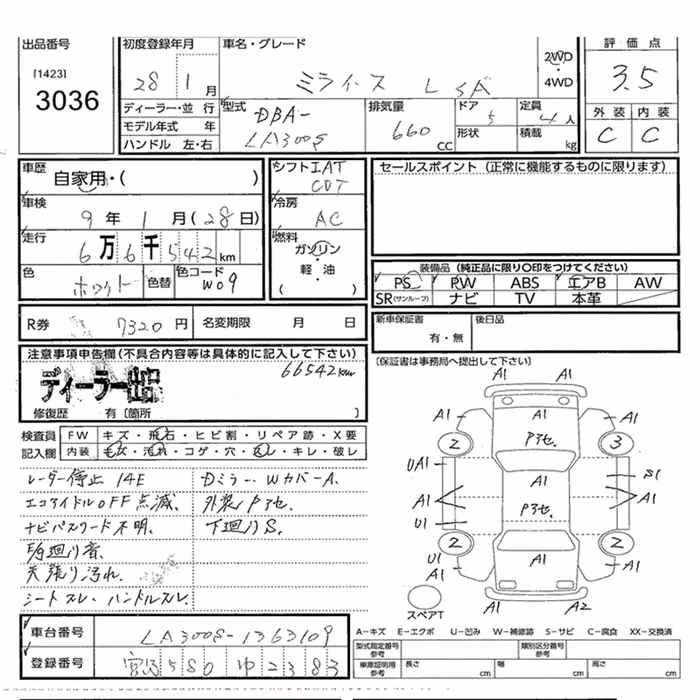 出品番号
[1423]
3036
初度登録年月
28 1 月
ディーラー・並 行
モデル年式 年
ハンドル 左・右
車名・グレード
ミライース L SA
2WD
・
4WD
型式 DBA-
LA300S
排気量
660 cc
ドア 5
形状
定員 4 人
積載 kg
評 価 点
3.5
外 装 内 装
C C
車歴
自家用・( )
車検
9 年 1 月 (28 日)
走行
6万6千542km
色
ホワイト
色替
色コード
W09
シフト IAT
CVT
冷房
AC
燃料
ガソリン
・
軽 ・ 油
( )
セールスポイント (正常に機能するものに限ります)
装備品 (純正品に限り〇印をつけてください)
PS PW ABS エアB AW
SR(サンルーフ) ナビ TV 本革
R券 7320 円 名変期限 月 日
新車保証書
有・無
後日品
(保証書は事務局へ提出して下さい)
注意事項申告欄 (不具合内容等は具体的に記入して下さい)
66542km
ディーラー出品
修復歴 有 〔箇所 〕
検査員
記入欄
FW キズ・飛石・ヒビ割・リペア跡・X要
内装 キズ・汚れ・コゲ・穴・スレ・キレ・破レ
レーダー停止 14E
エコアイドルOFF点滅
ナビパスワード不明
天張り汚れ
シートスレ、ハンドルスレ
DミラーWカバーA
外装Pアセ
下廻りS
A1 A1
A1 A1
A1 A1
2 Pアセ 3
A1
UA1 S1
A1 Pアセ A1
U1
2 A1 2
U1 U1
A1 A1
A1 A2
スペアT
A-キズ E-エクボ U-凹み W-補修跡 S-サビ C-腐食 XX-交換済
型式指定番号 類別区分番号
車庫証明用
参考
長さ cm 幅 cm 高さ cm
車台番号 LA300S-1363109
登録番号 宮崎 580 ゆ 2383